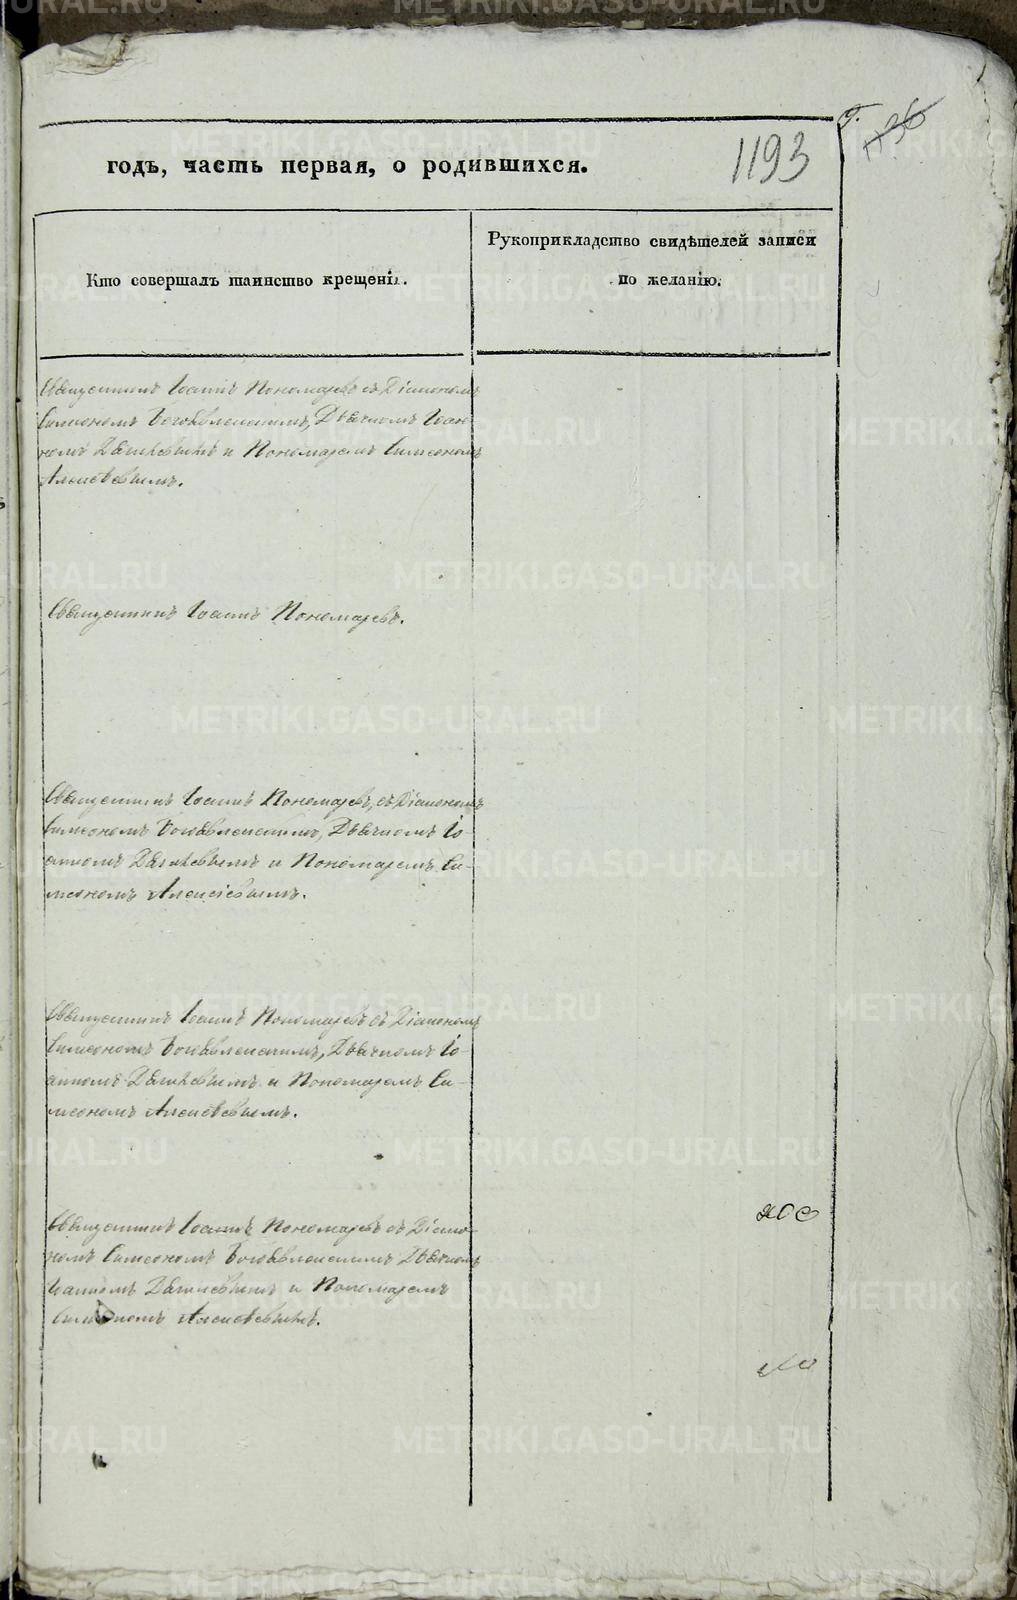 1193
годъ, часть первая, о родившихся.
Кто совершалъ таинство крещенія.
Рукоприкладство свидѣтелей записи
по желанію.
Священникъ Іоаннъ Пономаревъ съ Діакономъ
Симеономъ Богоявленскимъ, Дьячкомъ Іоан
номъ и Пономаремъ Симеономъ
Алексѣевымъ.
Священникъ Іоаннъ Пономаревъ.
Священникъ Іоаннъ Пономаревъ, съ Діакономъ
Симеономъ Богоявленскимъ, Дьячкомъ Іо-
анномъ и Пономаремъ Си-
меономъ Алексіевымъ.
Священникъ Іоаннъ Пономаревъ съ Діакономъ
Симеономъ Богоявленскимъ, Дьячкомъ Іо-
анномъ и Пономаремъ Си-
меономъ Алексѣевымъ.
Священникъ Іоаннъ Пономаревъ съ Діако-
номъ Симеономъ Богоявленскимъ Дьячкомъ
Іоанномъ и Пономаремъ
Симеономъ Алексѣевымъ.
METRIKI.GASO-URAL.RU